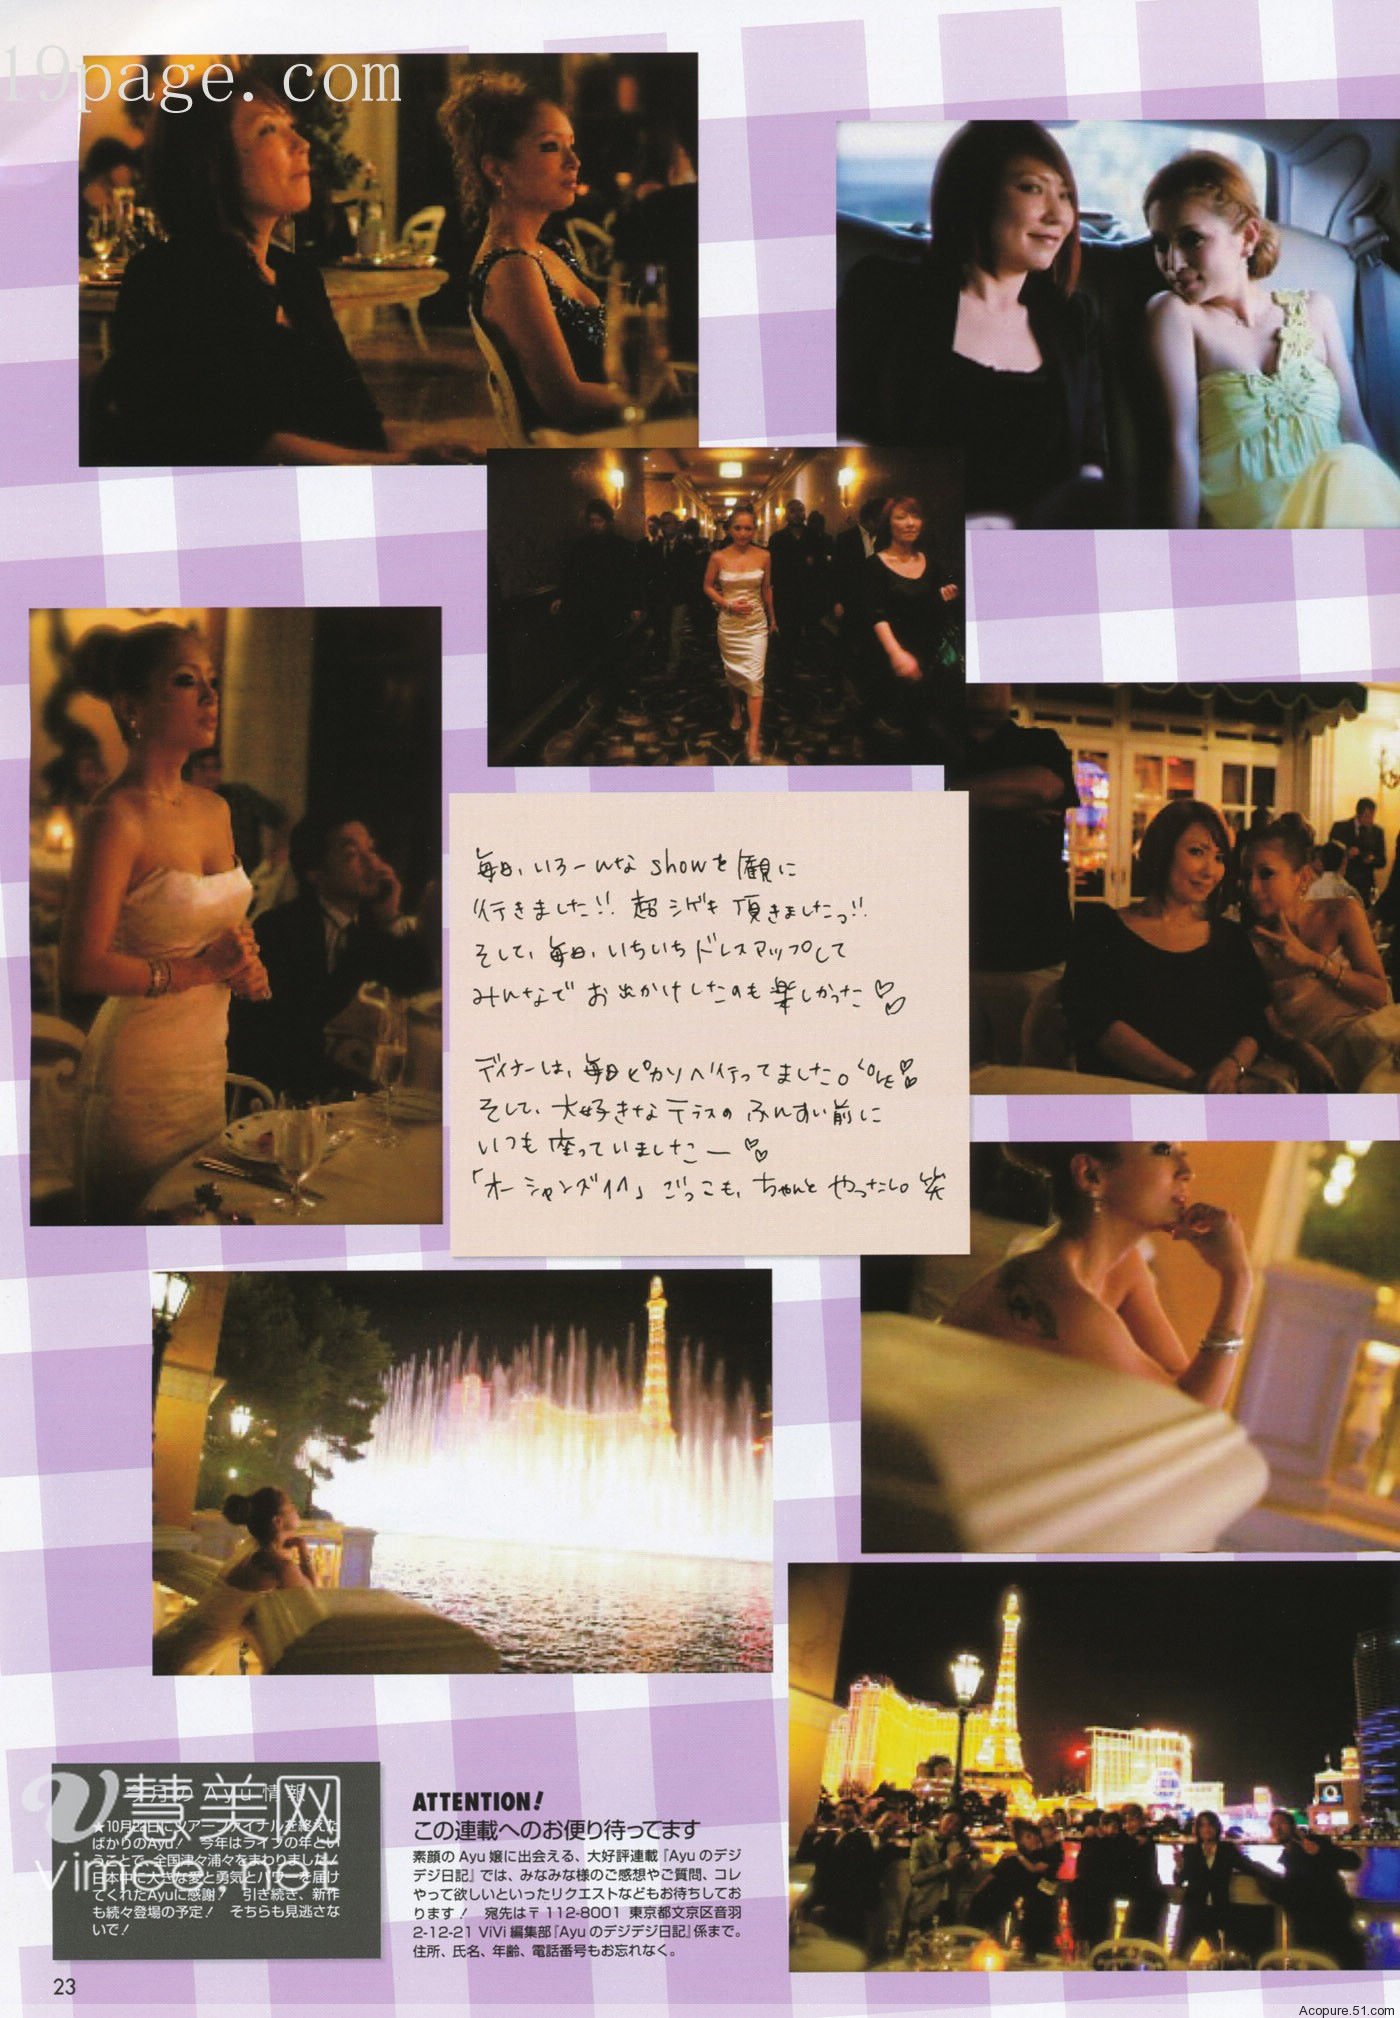 19page.com
毎日、いろーんな showを観に
行きました!! 超シゲキ頂きましたっ!!
そして、毎日、いちいちドレスアップして
みんなでお出かけしたのも楽しかった♡♡
ディナーは、毎日ピカソへ行ってました。LOVE♡♡
そして、大好きなテラスのふんすい前に
いつも座っていましたー♡♡
「オーシャンズ11」ごっこも、ちゃんとやったし。笑
今月のAyu情報
★10月22日にツアーファイナルを終えた
ばかりのAyu。 今年はライブの年とい
うことで、全国津々浦々をまわりました!
日本中に大きな愛と勇気とパワーを届け
てくれたAyuに感謝! 引き続き、新作
も続々登場の予定! そちらも見逃さな
いで!
慧美网
vimee.net
ATTENTION!
この連載へのお便り待ってます
素顔のAyu嬢に出会える、大好評連載『Ayuのデジ
デジ日記』では、みなみな様のご感想やご質問、コレ
やって欲しいといったリクエストなどもお待ちしてお
ります! 宛先は〒112-8001 東京都文京区音羽
2-12-21 ViVi編集部『Ayuのデジデジ日記』係まで。
住所、氏名、年齢、電話番号もお忘れなく。
23
Acopure.51.com